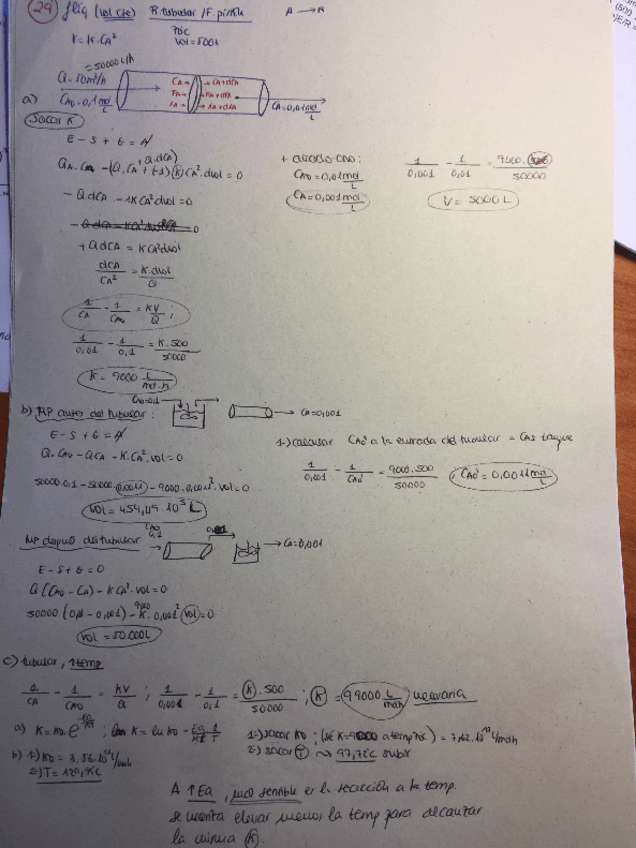 29) fliq (vol cte) R. tubular / F. pistón A → R
r = K·CA²
70ºC
vol = 500 L
= 50000 L/h
CA → → CA + dCA
CA0 = 0,1 mol/L
CA = 0,01 mol/L
a)
Sacar K
E - S + G = A
- Q dCA - 1K CA² dvol = 0
+ Q dCA = K CA² dvol
dCA / CA² = K·dvol / Q
1/CA - 1/CA0 = KV/Q ;
1/0,01 - 1/0,1 = K·500 / 50000
K = 9000 L/mol·h
CA0 = 0,01 mol/L
CA = 0,001 mol/L
1/0,001 - 1/0,01 = 9000· / 50000
V = 5000 L
b) MP antes del tubular:
CA0 = 0,1
→ CA = 0,001
E - S + G = A
Q·CA0 - Q CA - K·CA²·vol = 0
50000·0,1 - 50000·0,0011 - 9000·0,0011²·vol = 0
vol = 454,09·10³ L
1-) calcular CA0' a la entrada del tubular = CAs tanque
1/0,001 - 1/CA0' = 9000·500 / 50000
CA0' = 0,0011 mol/L
MP después del tubular
CA0
0,1
→ CA = 0,001
E - S + G = 0
Q (CA0 - CA) - K CA²·vol = 0
9000
50000 (0,01 - 0,001) - K·0,001² vol = 0
vol = 50.000 L
c) tubular, ↑temp
1/CA - 1/CA0 = KV/Q ; 1/0,001 - 1/0,1 = K·500 / 50000 ; K = 99000 L/mol·h necesaria
2-) sacar T → 97,7ºC subir
2-) T = 129,7ºC
A ↑Ea, más sensible es la reacción a la temp.
se necesita elevar menos la temp para alcanzar
la misma K.